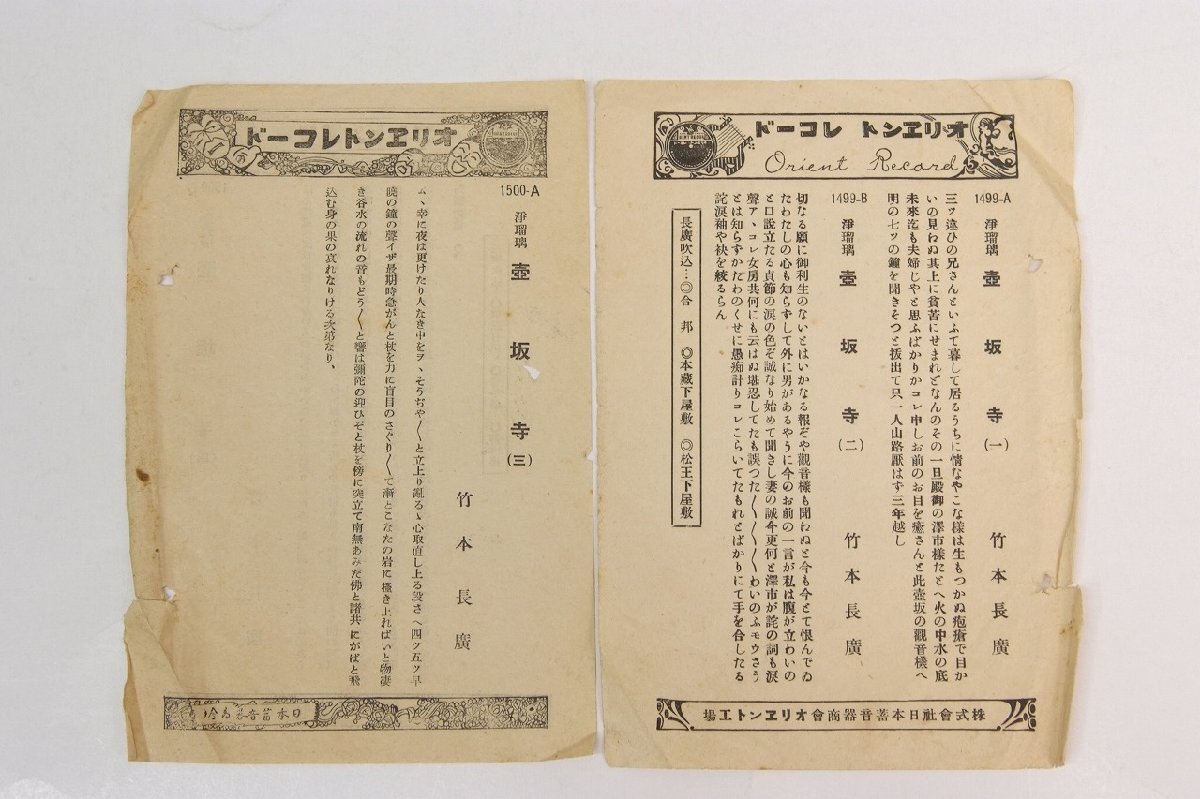 ドーコレ トンヱリオ
Orient Record
1499-A
淨瑠璃 壺坂寺(一) 竹本長廣
三ツ違ひの兄さんといふて暮して居るうちに情なやこな樣は生もつかぬ疱瘡で目か
いの見わぬ其上に貧苦にせまれどなんのその一旦殿御の澤市樣たとへ火の中水の底
未來迄も夫婦じやと思ふばかりかコレ申しお前のお目を癒さんと此壺坂の觀音樣へ
明の七ツの鐘を聞きそつと拔出て只一人山路厭はず三年越し
1499-B
淨瑠璃 壺坂寺(二) 竹本長廣
切なる願に御利生のないとはいかなる報ぞや觀音樣も聞わぬと今も今とて恨んでゐ
たわたしの心も知らずして外に男があるやうに今のお前の一言が私は腹が立わいの
と口說立たる貞節の淚の色ぞ誠なり始めて聞きし妻の誠今更何と澤市が詫の詞も淚
聲アヽコレ女房共何にも云はぬ堪忍してたも誤つた〳〵〳〵〳〵わいのふモウさう
とは知らずかたわのくせに愚痴計りコレこらいてたもれとばかりにて手を合したる
詫淚袖や袂を絞るらん
長廣吹込…◎合 邦 ◎本藏下屋敷 ◎松王下屋敷
株式會社日本蓄音器商會オリヱント工場
ドーコレトンヱリオ
1500-A
淨瑠璃 壺坂寺(三) 竹本長廣
ムヽ幸に夜は更けたり人なき中をヲヽそうぢや〳〵と立上り亂るヽ心取直し上る段さへ四ツ五ツ早
曉の鐘の聲イザ最期時急がんと杖を力に盲目のさぐり〳〵て漸とこなたの岩に攀き上ればいと物凄
き谷水の流れの音もどう〳〵と響は彌陀の迎ひぞと杖を傍に突立て南無あみだ佛と諸共にがばと飛
込む身の果の哀れなりける次第なり、
日本蓄音器商會